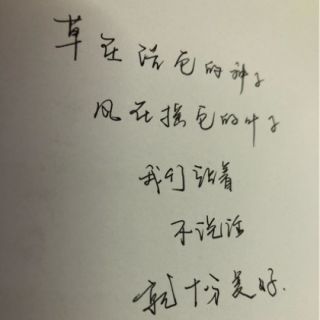 草在结它的种子
风在摇它的叶子
我们站着
不说话
就十分美好.